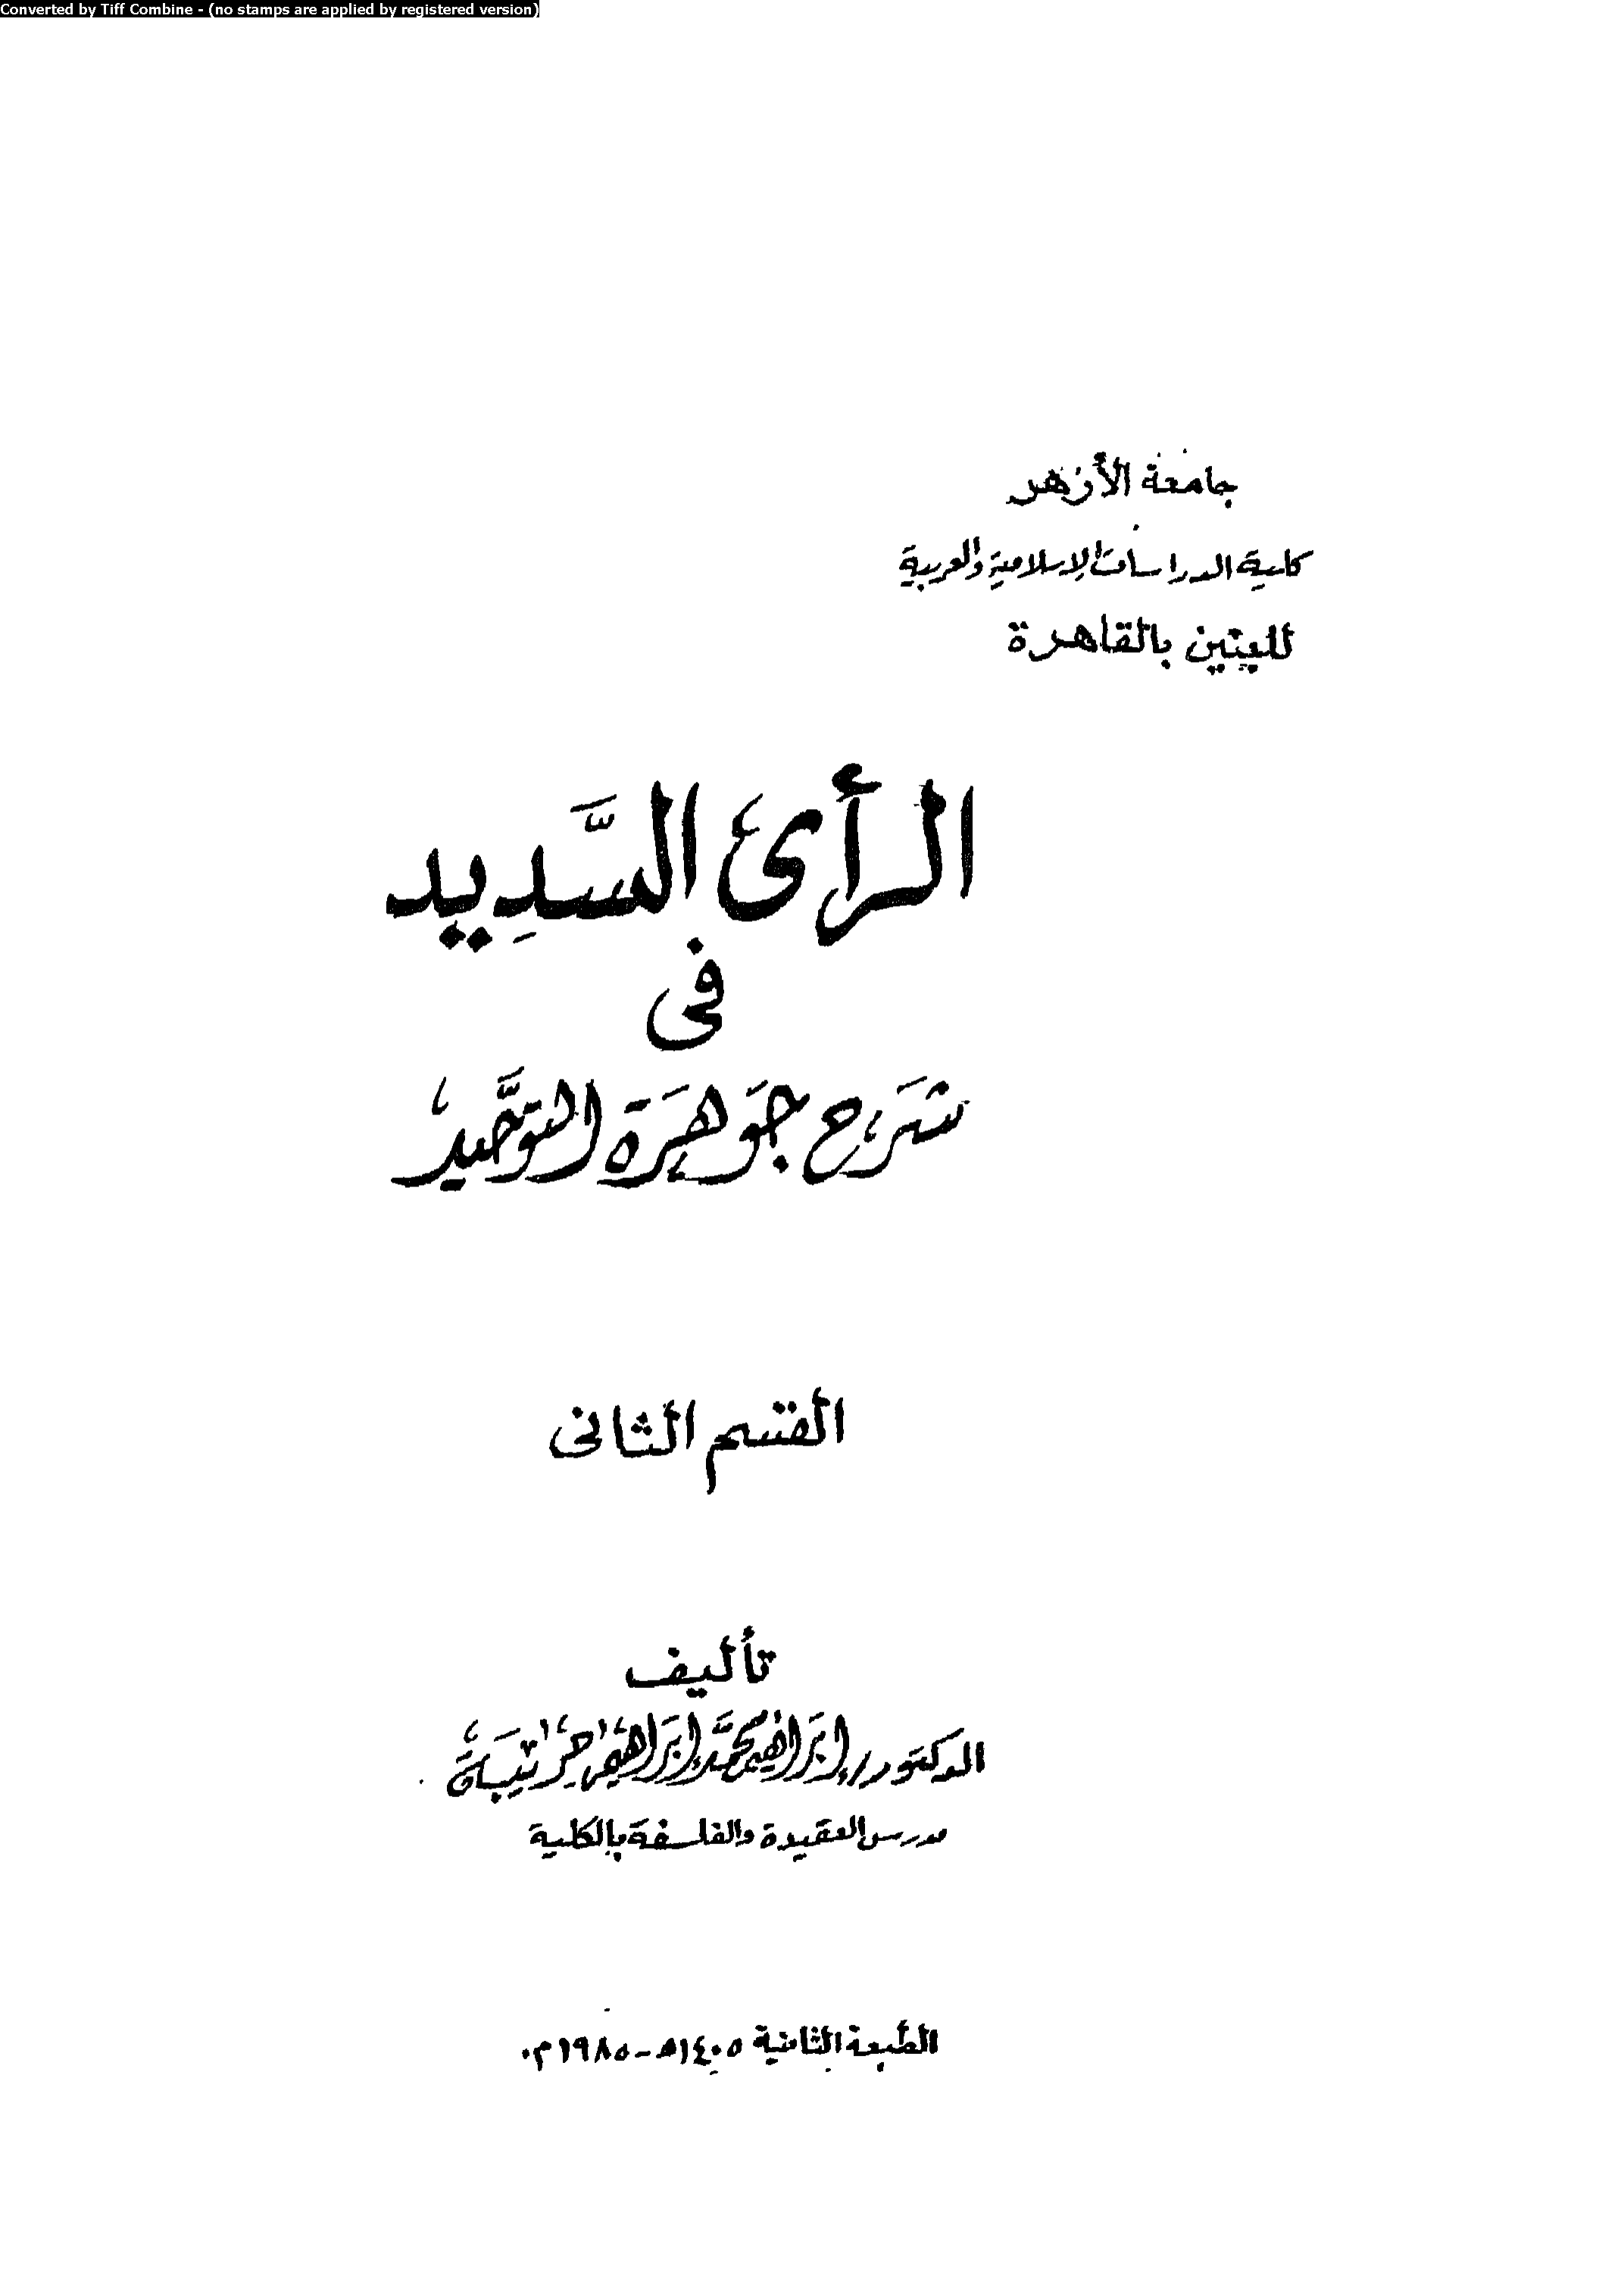 Converted by Tiff Combine - (no stamps are applied by registered version)
جامعة الأزهر
كلية الدراسات الإسلامية والعربية
للبنين بالقاهرة
الرأى السَّدِيد
فى
شَرْح جَوْهَرَة التَّوْحيد
القسم الثانى
تأليف
الدكتور/ إبْرَاهيم محمَّد إبْرَاهيم حريْبَة
مدرس العقيدة والفلسفة بالكلية
الطبعة الثانية ١٤٠٥هـ - ١٩٨٥م.